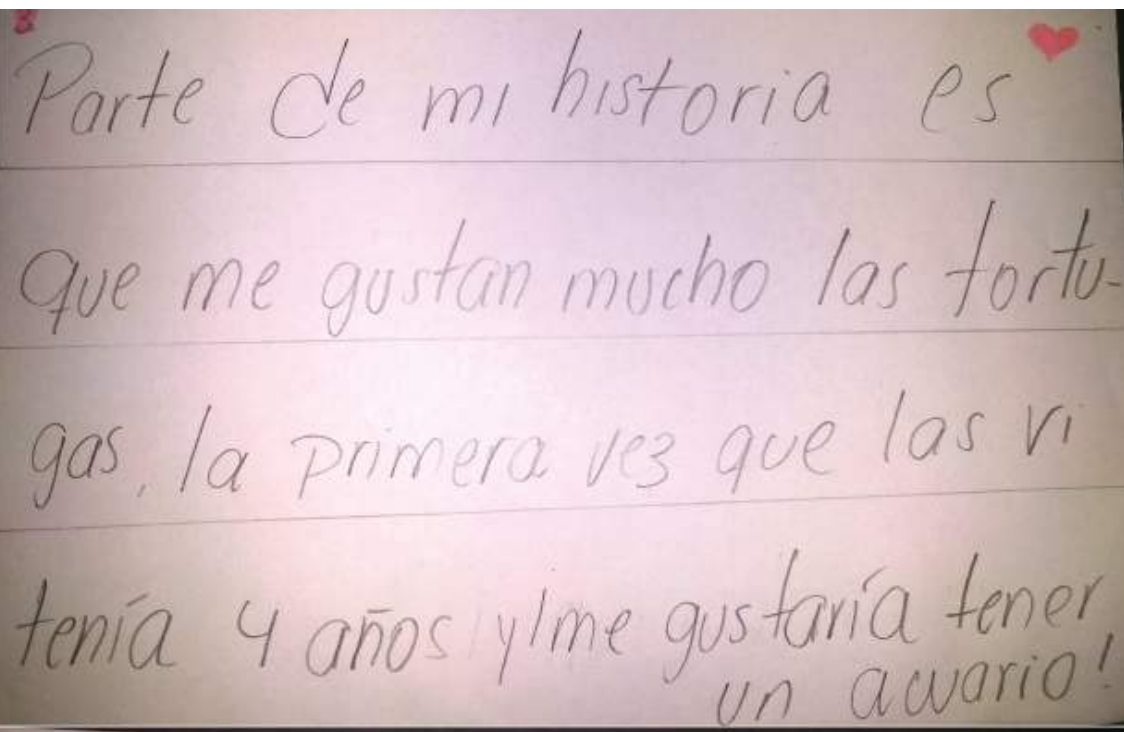 Parte de mi historia es
que me gustan mucho las tortu-
gas, la primera vez que las vi
tenía 4 años y ¡me gustaría tener
un acuario!